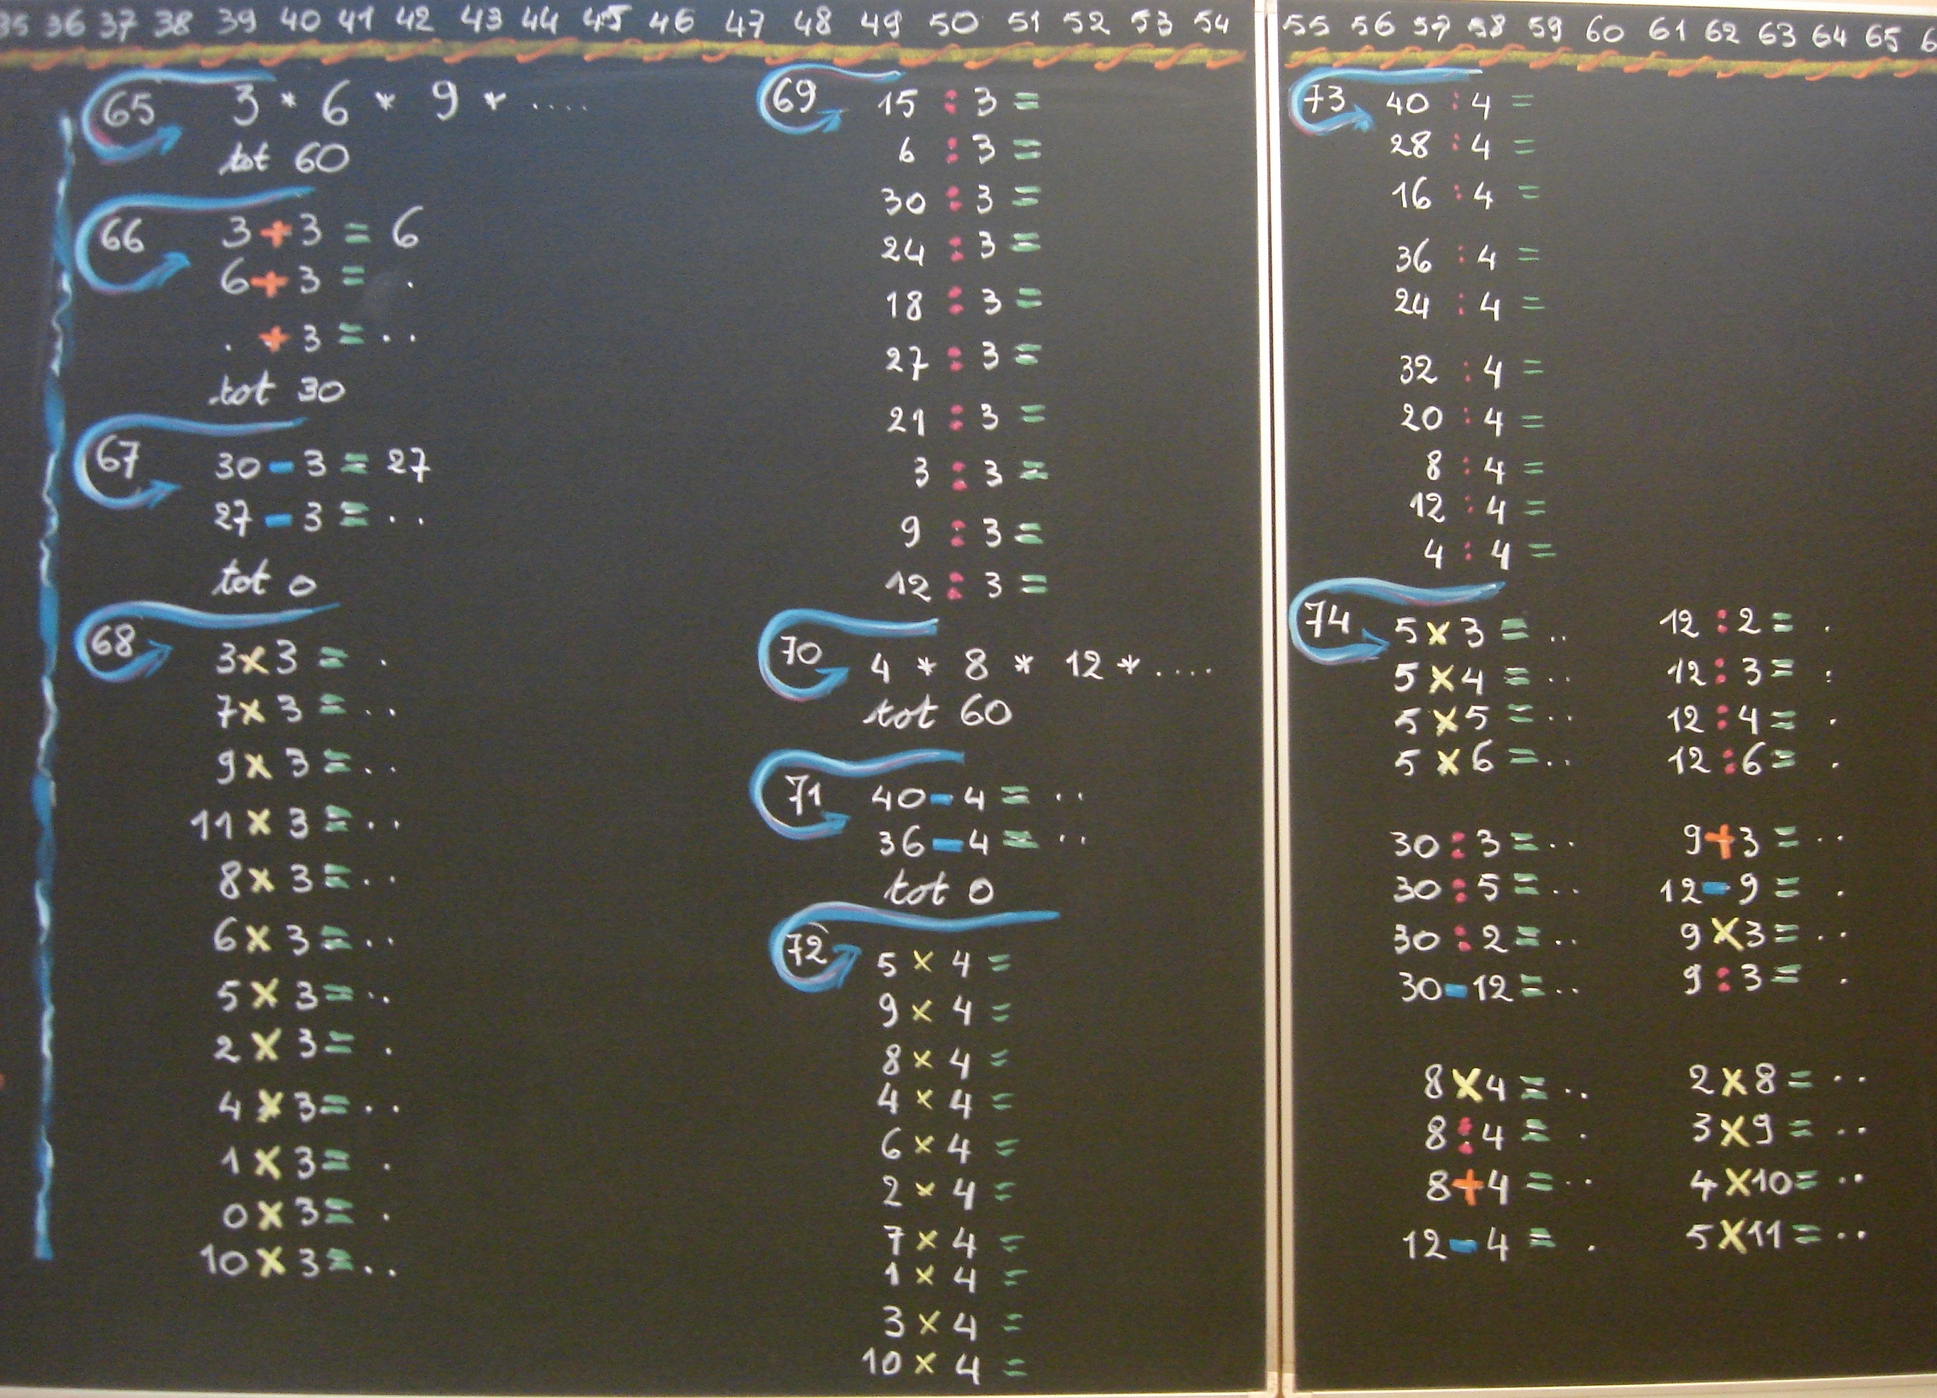 35 36 37 38 39 40 41 42 43 44 45 46 47 48 49 50 51 52 53 54 55 56 57 58 59 60 61 62 63 64 65
65 3 * 6 * 9 * ....
tot 60
66 3 + 3 = 6
6 + 3 = .
. + 3 = ..
tot 30
67 30 - 3 = 27
27 - 3 = ..
tot 0
68 3 x 3 = .
7 x 3 = ..
9 x 3 = ..
11 x 3 = ..
8 x 3 = ..
6 x 3 = ..
5 x 3 = ..
2 x 3 = .
4 x 3 = ..
1 x 3 = .
0 x 3 = .
10 x 3 = ..
69 15 : 3 =
6 : 3 =
30 : 3 =
24 : 3 =
18 : 3 =
27 : 3 =
21 : 3 =
3 : 3 =
9 : 3 =
12 : 3 =
70 4 * 8 * 12 * ....
tot 60
71 40 - 4 = ..
36 - 4 = ..
tot 0
72 5 x 4 =
9 x 4 =
8 x 4 =
4 x 4 =
6 x 4 =
2 x 4 =
7 x 4 =
1 x 4 =
3 x 4 =
10 x 4 =
73 40 : 4 =
28 : 4 =
16 : 4 =
36 : 4 =
24 : 4 =
32 : 4 =
20 : 4 =
8 : 4 =
12 : 4 =
4 : 4 =
74 5 x 3 = ..
5 x 4 = ..
5 x 5 = ..
5 x 6 = ..
30 : 3 = ..
30 : 5 = ..
30 : 2 = ..
30 - 12 = ..
8 x 4 = ..
8 : 4 = .
8 + 4 = ..
12 - 4 = .
12 : 2 = .
12 : 3 = .
12 : 4 = .
12 : 6 = .
9 + 3 = ..
12 - 9 = .
9 x 3 = ..
9 : 3 = .
2 x 8 = ..
3 x 9 = ..
4 x 10 = ..
5 x 11 = ..